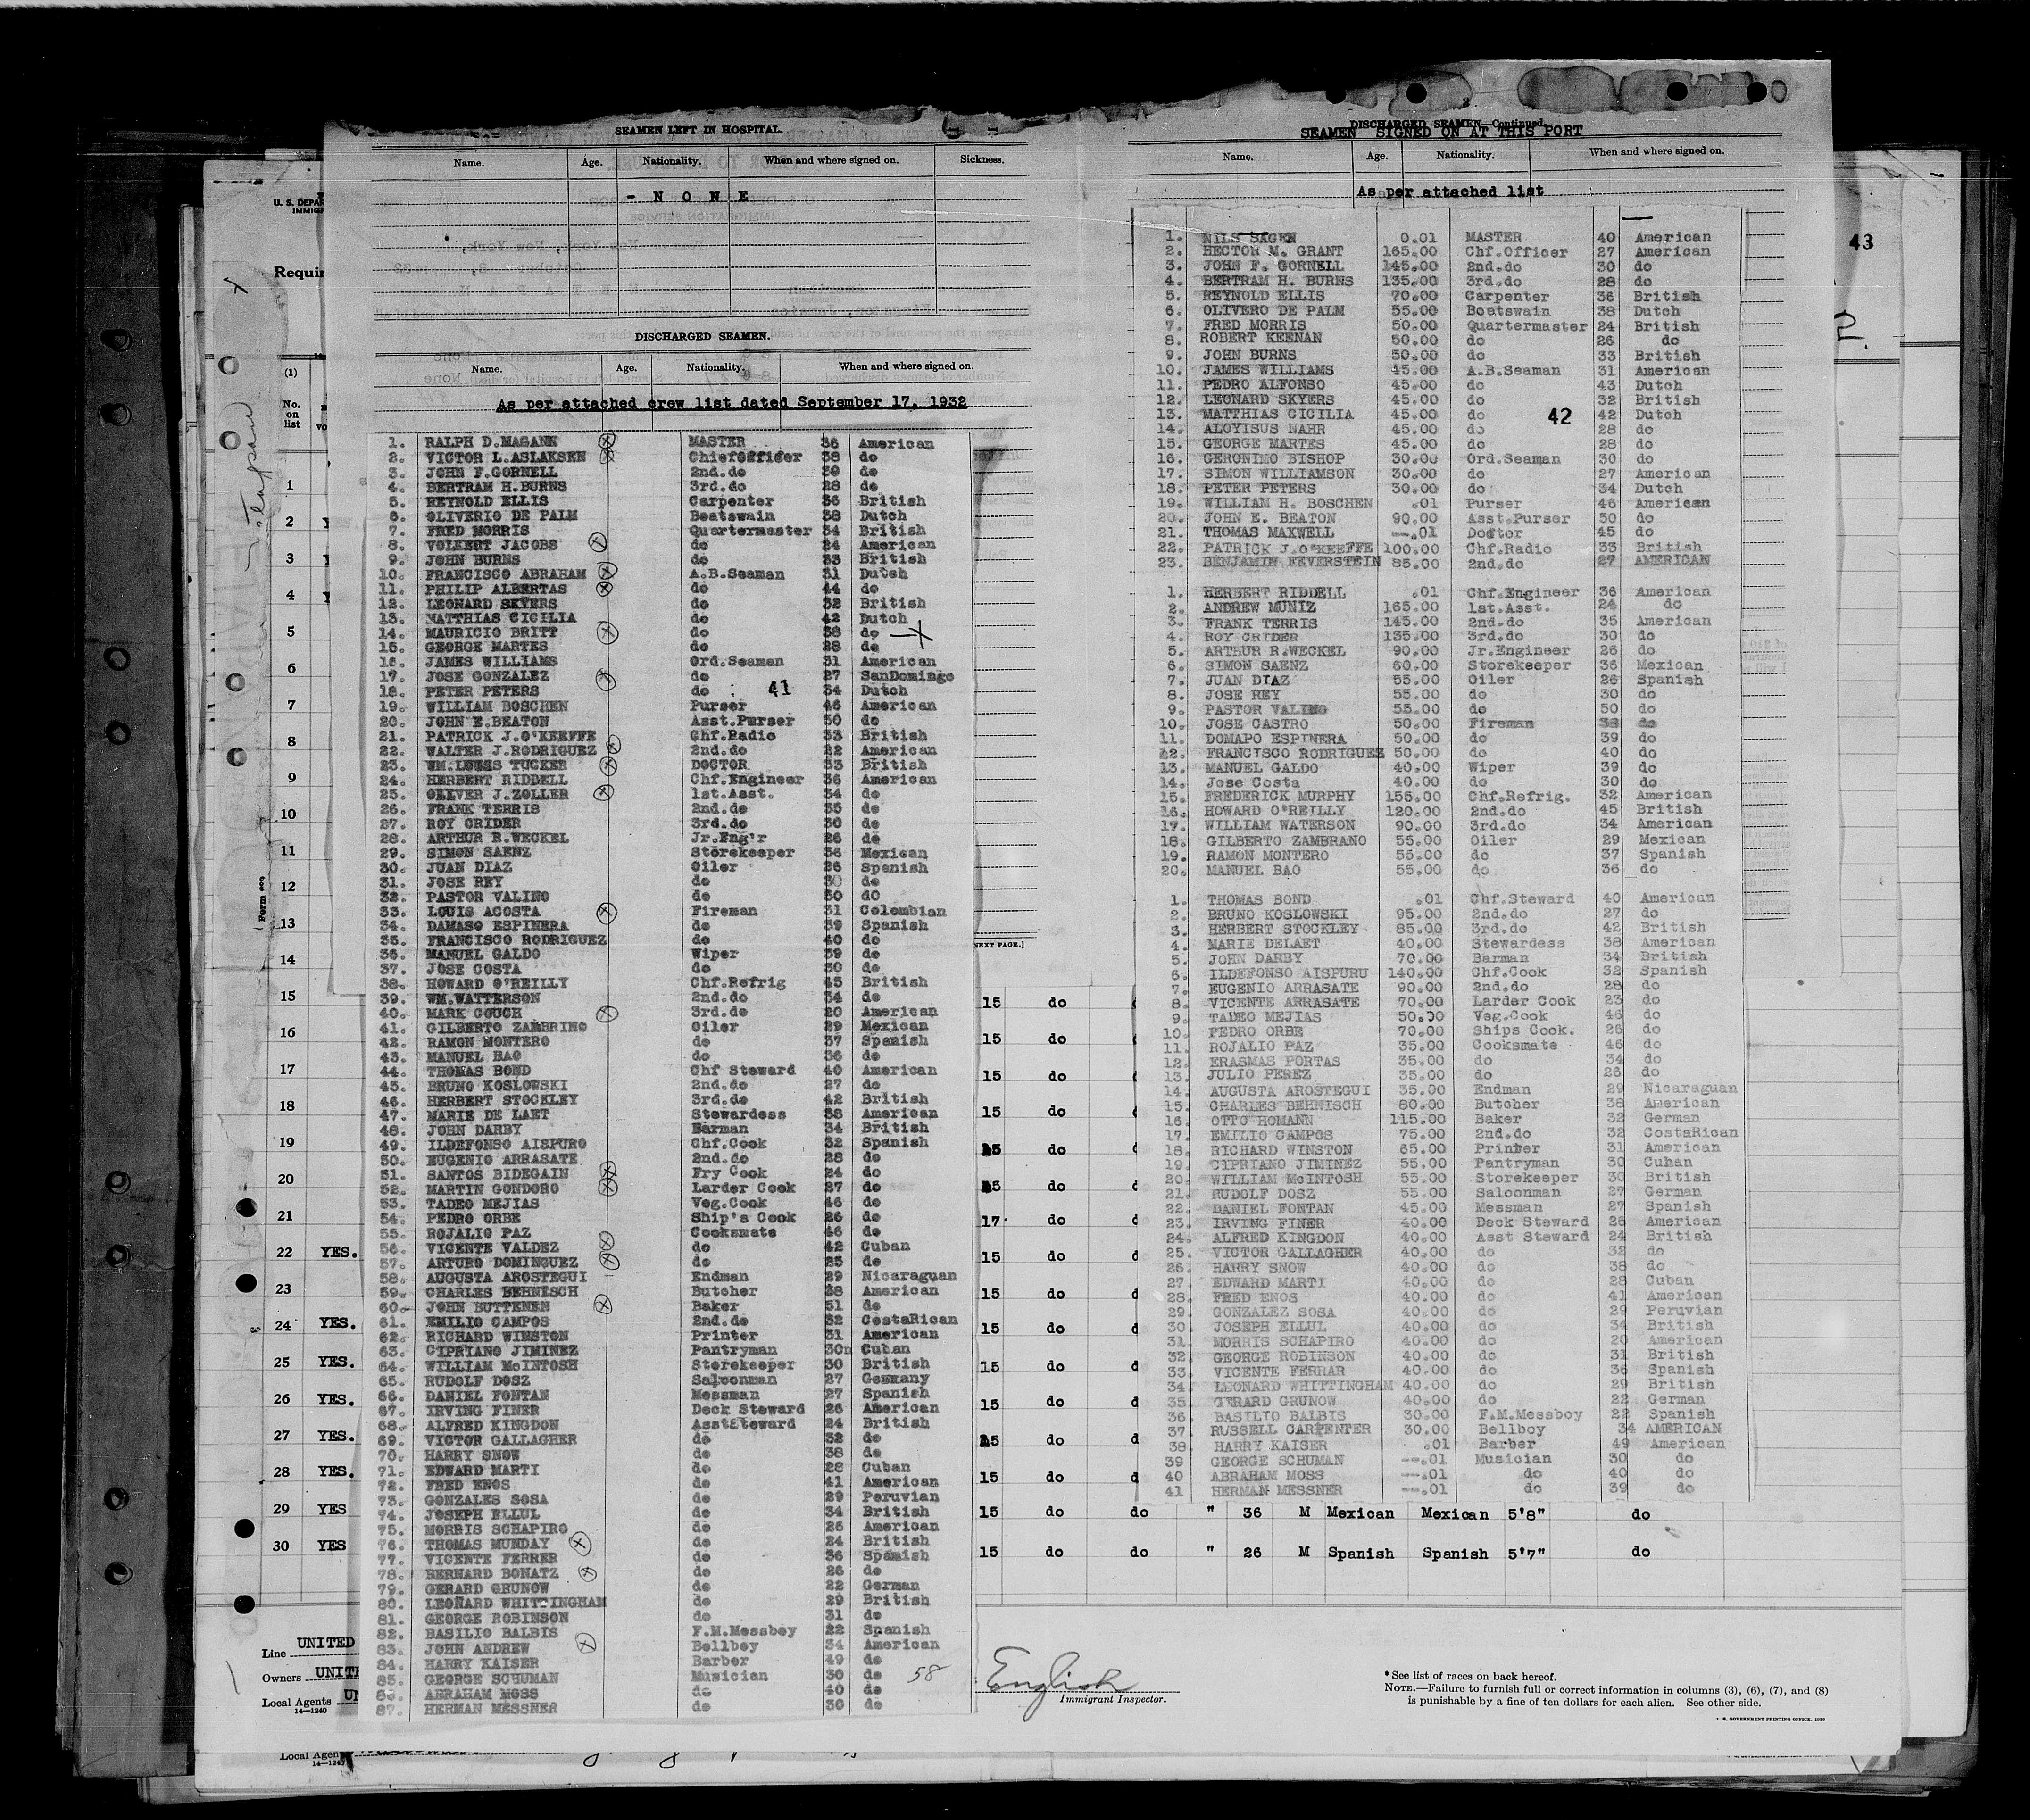 SEAMEN LEFT IN HOSPITAL.
Name. Age. Nationality. When and where signed on. Sickness.
- N O N E
DISCHARGED SEAMEN.
Name. Age. Nationality. When and where signed on.
As per attached crew list dated September 17, 1932
1. RALPH D.MAGANN MASTER 36 American
2. VICTOR L.ASLAKSEN Chiefofficer 38 do
3. JOHN F.GORNELL 2nd.do 30 do
4. BERTRAM H.BURNS 3rd.do 28 do
5. REYNOLD ELLIS Carpenter 36 British
6. OLIVERIO DE PALM Boatswain 38 Dutch
7. FRED MORRIS Quartermaster 34 British
8. VOLKERT JACOBS do 24 American
9. JOHN BURNS do 33 British
10. FRANCISCO ABRAHAM A.B.Seaman 31 Dutch
11. PHILIP ALBERTAS do 44 do
12. LEONARD SKYERS do 32 British
13. MATTHIAS CICILIA do 42 Dutch
14. MAURICIO BRITT do 38 do
15. GEORGE MARTES do 28 do
16. JAMES WILLIAMS Ord.Seaman 31 American
17. JOSE GONZALEZ do 27 SanDomingo
18. PETER PETERS do 41 34 Dutch
19. WILLIAM BOSCHEN Purser 46 American
20. JOHN E.BEATON Asst.Purser 50 do
21. PATRICK J.O'KEEFFE Chf.Radio 33 British
22. WALTER J.RODRIGUEZ 2nd.do 22 American
23. WM.LOUIS TUCKER DOCTOR 33 British
24. HERBERT RIDDELL Chf.Engineer 36 American
25. OLIVER J.ZOLLER 1st.Asst. 34 do
26. FRANK TERRIS 2nd.do 35 do
27. ROY CRIDER 3rd.do 30 do
28. ARTHUR R.WECKEL Jr.Eng'r 26 do
29. SIMON SAENZ Storekeeper 36 Mexican
30. JUAN DIAZ Oiler 26 Spanish
31. JOSE REY do 30 do
32. PASTOR VALINO do 50 do
33. LOUIS ACOSTA Fireman 31 Colombian
34. DAMASO ESPINERA do 39 Spanish
35. FRANCISCO RODRIGUEZ do 40 do
36. MANUEL GALDO Wiper 39 do
37. JOSE COSTA do 30 do
38. HOWARD O'REILLY Chf.Refrig 45 British
39. WM.WATTERSON 2nd.do 34 do
40. MARK COUCH 3rd.do 20 American
41. GILBERTO ZAMBRINO Oiler 29 Mexican
42. RAMON MONTERO do 37 Spanish
43. MANUEL BAO do 36 do
44. THOMAS BOND Chf Steward 40 American
45. BRUNO KOSLOWSKI 2nd.do 27 do
46. HERBERT STOCKLEY 3rd.do 42 British
47. MARIE DE LAET Stewardess 38 American
48. JOHN DARBY Barman 34 British
49. ILDEFONSO AISPURO Chf.Cook 32 Spanish
50. EUGENIO ARRASATE 2nd.do 28 do
51. SANTOS BIDEGAIN Fry Cook 24 do
52. MARTIN GONDORO Larder Cook 27 do
53. TADEO MEJIAS Veg.Cook 46 do
54. PEDRO ORBE Ship's Cook 26 do
55. ROJALIO PAZ Cooksmate 46 do
56. VICENTE VALDEZ do 42 Cuban
57. ARTURO DOMINGUEZ do 25 do
58. AUGUSTA AROSTEGUI Endman 29 Nicaraguan
59. CHARLES BEHNISCH Butcher 38 American
60. JOHN BUTTENEN Baker 51 do
61. EMILIO CAMPOS 2nd.do 32 CostaRican
62. RICHARD WINSTON Printer 31 American
63. CIPRIANO JIMINEZ Pantryman 30n Cuban
64. WILLIAM McINTOSH Storekeeper 30 British
65. RUDOLF DOSZ Saloonman 27 Germany
66. DANIEL FONTAN Messman 27 Spanish
67. IRVING FINER Deck Steward 26 American
68. ALFRED KINGDON AsstSteward 24 British
69. VICTOR GALLAGHER do 32 do
70. HARRY SNOW do 38 do
71. EDWARD MARTI do 28 Cuban
72. FRED ENOS do 41 American
73. GONZALES SOSA do 29 Peruvian
74. JOSEPH ELLUL do 34 British
75. MORRIS SCHAPIRO do 26 American
76. THOMAS MUNDAY do 24 British
77. VICENTE FERRER do 36 Spanish
78. BERNARD BONATZ do 26 do
79. GERARD GRUNOW do 22 German
80. LEONARD WHITTINGHAM do 29 British
81. GEORGE ROBINSON do 31 do
82. BASILIO BALBIS F.M.Messboy 22 Spanish
83. JOHN ANDREW Bellboy 34 American
84. HARRY KAISER Barber 49 do
85. GEORGE SCHUMAN Musician 30 do 58
86. ABRAHAM MOSS do 40 do
87. HERMAN MESSNER do 30 do
DISCHARGED SEAMEN—Continued.
SEAMEN SIGNED ON AT THIS PORT
Name. Age. Nationality. When and where signed on.
As per attached list
1. NILS SAGEN 0.01 MASTER 40 American
2. HECTOR M. GRANT 165.00 Chf.Officer 27 American
3. JOHN F. GORNELL 145.00 2nd.do 30 do
4. BERTRAM H. BURNS 135.00 3rd.do 28 do
5. REYNOLD ELLIS 70.00 Carpenter 36 British
6. OLIVERO DE PALM 55.00 Boatswain 38 Dutch
7. FRED MORRIS 50.00 Quartermaster 24 British
8. ROBERT KEENAN 50.00 do 26 do
9. JOHN BURNS 50.00 do 33 British
10. JAMES WILLIAMS 45.00 A.B.Seaman 31 American
11. PEDRO ALFONSO 45.00 do 43 Dutch
12. LEONARD SKYERS 45.00 do 32 British
13. MATTHIAS CICILIA 45.00 do 42 42 Dutch
14. ALOYISUS NAHR 45.00 do 28 do
15. GEORGE MARTES 45.00 do 28 do
16. GERONIMO BISHOP 30.00 Ord.Seaman 30 do
17. SIMON WILLIAMSON 30.00 do 27 American
18. PETER PETERS 30.00 do 34 Dutch
19. WILLIAM H. BOSCHEN .01 Purser 46 American
20. JOHN E. BEATON 90.00 Asst.Purser 50 do
21. THOMAS MAXWELL —.01 Doctor 45 do
22. PATRICK J.O'KEEFFE 100.00 Chf.Radio 33 British
23. BENJAMIN FEVERSTEIN 85.00 2nd.do 27 AMERICAN
1. HERBERT RIDDELL .01 Chf.Engineer 36 American
2. ANDREW MUNIZ 165.00 1st.Asst. 24 do
3. FRANK TERRIS 145.00 2nd.do 35 American
4. ROY CRIDER 135.00 3rd.do 30 do
5. ARTHUR R.WECKEL 90.00 Jr.Engineer 26 do
6. SIMON SAENZ 60.00 Storekeeper 36 Mexican
7. JUAN DIAZ 55.00 Oiler 26 Spanish
8. JOSE REY 55.00 do 30 do
9. PASTOR VALINO 55.00 do 50 do
10. JOSE CASTRO 50.00 Fireman 38 do
11. DOMAPO ESPINERA 50.00 do 39 do
12. FRANCISCO RODRIGUEZ 50.00 do 40 do
13. MANUEL GALDO 40.00 Wiper 39 do
14. Jose Costa 40.00 do 30 do
15. FREDERICK MURPHY 155.00 Chf.Refrig. 32 American
16. HOWARD O'REILLY 120.00 2nd.do 45 British
17. WILLIAM WATERSON 90.00 3rd.do 34 American
18. GILBERTO ZAMBRANO 55.00 Oiler 29 Mexican
19. RAMON MONTERO 55.00 do 37 Spanish
20. MANUEL BAO 55.00 do 36 do
1. THOMAS BOND .01 Chf.Steward 40 American
2. BRUNO KOSLOWSKI 95.00 2nd.do 27 do
3. HERBERT STOCKLEY 85.00 3rd.do 42 British
4. MARIE DELAET 40.00 Stewardess 38 American
5. JOHN DARBY 70.00 Barman 34 British
6. ILDEFONSO AISPURU 140.00 Chf.Cook 32 Spanish
7. EUGENIO ARRASATE 90.00 2nd.do 28 do
8. VICENTE ARRASATE 70.00 Larder Cook 23 do
9. TADEO MEJIAS 50.00 Veg.Cook 46 do
10. PEDRO ORBE 70.00 Ships Cook. 26 do
11. ROJALIO PAZ 35.00 Cooksmate 46 do
12. ERASMAS PORTAS 35.00 do 34 do
13. JULIO PEREZ 35.00 do 26 do
14. AUGUSTA AROSTEGUI 35.00 Endman 29 Nicaraguan
15. CHARLES BEHNISCH 80.00 Butcher 38 American
16. OTTO HOMANN 115.00 Baker 32 German
17. EMILIO CAMPOS 75.00 2nd.do 32 CostaRican
18. RICHARD WINSTON 65.00 Printer 31 American
19. CIPRIANO JIMINEZ 55.00 Pantryman 30 Cuban
20. WILLIAM McINTOSH 55.00 Storekeeper 30 British
21. RUDOLF DOSZ 55.00 Saloonman 27 German
22. DANIEL FONTAN 45.00 Messman 27 Spanish
23. IRVING FINER 40.00 Deck Steward 26 American
24. ALFRED KINGDON 40.00 Asst Steward 24 British
25. VICTOR GALLAGHER 40.00 do 32 do
26. HARRY SNOW 40.00 do 38 do
27. EDWARD MARTI 40.00 do 28 Cuban
28. FRED ENOS 40.00 do 41 American
29. GONZALEZ SOSA 40.00 do 29 Peruvian
30. JOSEPH ELLUL 40.00 do 34 British
31. MORRIS SCHAPIRO 40.00 do 20 American
32. GEORGE ROBINSON 40.00 do 31 British
33. VICENTE FERRAR 40.00 do 36 Spanish
34. LEONARD WHITTINGHAM 40.00 do 29 British
35. GERARD GRUNOW 40.00 do 22 German
36. BASILIO BALBIS 30.00 F.M.Messboy 22 Spanish
37. RUSSELL CARPENTER 30.00 Bellboy 34 AMERICAN
38 HARRY KAISER .01 Barber 49 American
39 GEORGE SCHUMAN —.01 Musician 30 do
40 ABRAHAM MOSS —.01 do 40 do
41 HERMAN MESSNER —.01 do 39 do
43
U. S. DEPAR
IMMIG
Requir
(1)
No. on list
1
2
3
4
5
6
7
8
9
10
11
12
13
14
15 15 do
16 15 do
17 15 do
18 15 do
19 15 do
20 25 do
21 17 do
22 YES. 15 do
23 15 do
24 YES. 15 do
25 YES. 15 do
26 YES. 15 do
27 YES. 25 do
28 YES. 15 do
29 YES 15 do do " 36 M Mexican Mexican 5'8" do
30 YES 15 do do " 26 M Spanish Spanish 5'7" do
NEXT PAGE.]
Line UNITED
Owners UNITE
Local Agents UN
14—1240
English
Immigrant Inspector.
* See list of races on back hereof.
NOTE.—Failure to furnish full or correct information in columns (3), (6), (7), and (8)
is punishable by a fine of ten dollars for each alien. See other side.
U. S. GOVERNMENT PRINTING OFFICE. 1929
Local Agen
14—1240